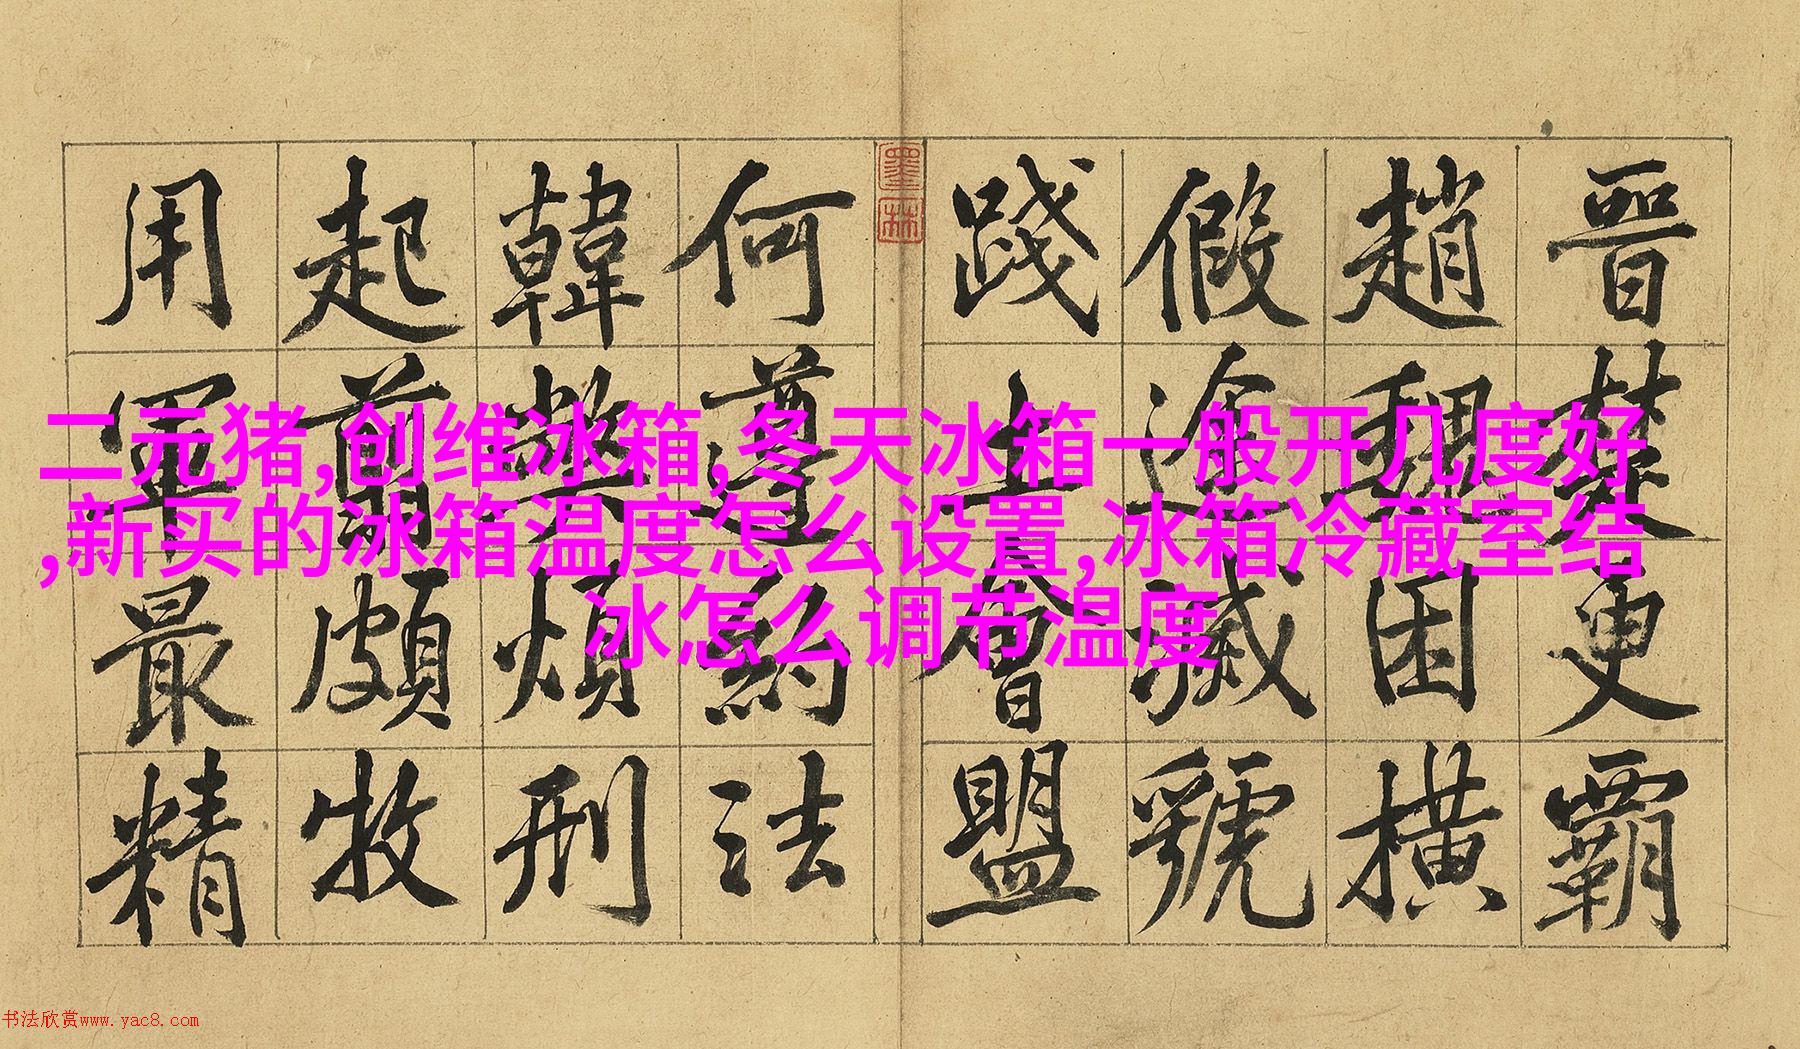 晉楚更霸
趙魏困橫
假途滅虢
踐土會盟
墨林
何遵約法
韓弊煩刑
起翦頗牧
用軍最精
二元猪,创维冰箱,冬天冰箱一般开几度好
,新买的冰箱温度怎么设置,冰箱冷藏室结
冰怎么调节温度
书法欣赏www.yac8.com